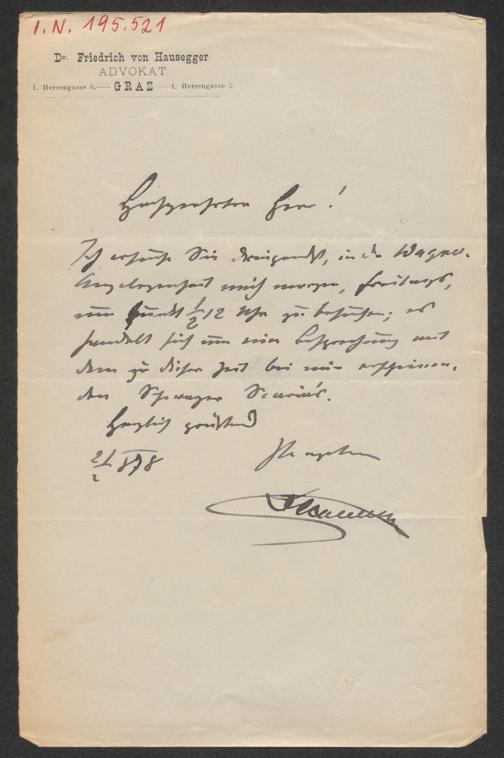 I.N. 195.521
Dr. Friedrich von Hausegger
ADVOKAT
I. Herrengasse 5,— GRAZ —I. Herrengasse 5.
Hochgeehrter Herr!
Ich ersuche Sie dringendst, in der Wagner-
Angelegenheit mich morgen, Freitags,
um punkt ½12 Uhr zu besuchen; es
handelt sich um eine Besprechung mit
dem zu dieser Zeit bei mir erscheinen-
den Schwager Scaria's.
Herzlich grüßend
21/2 878